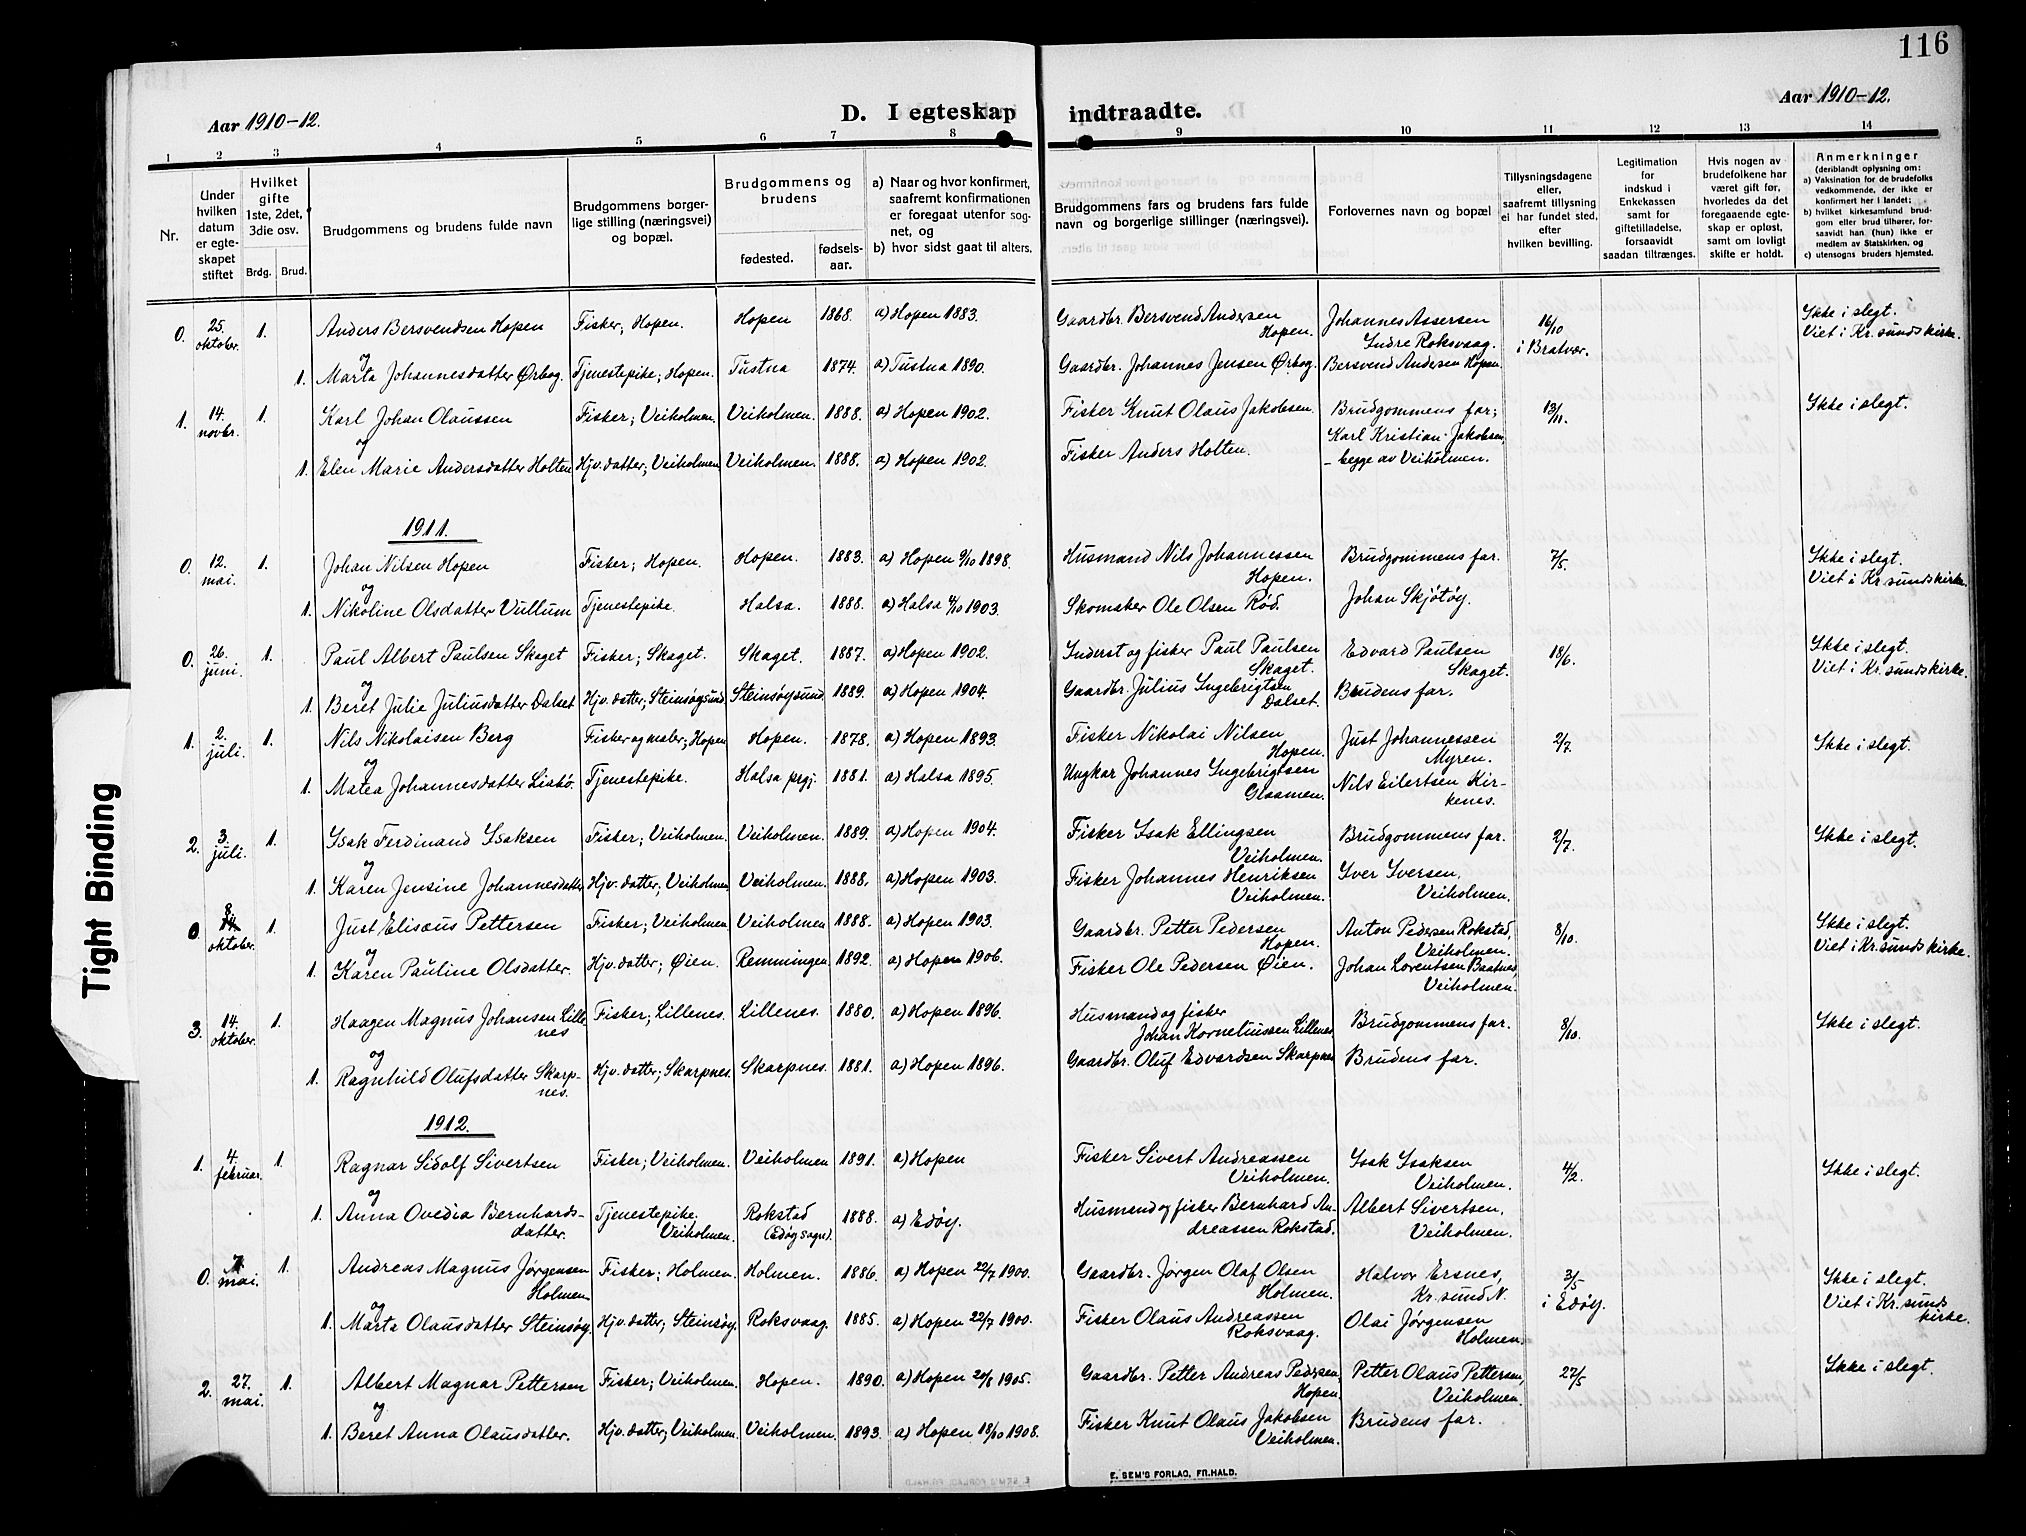 116
Aar 1910-12.
D. I egteskap indtraadte.
Aar 1910-12.
1 2 3 4 5 6 7 8 9 10 11 12 13 14
Nr.
Under hvilken datum er egteskapet stiftet
Hvilket gifte 1ste, 2det, 3die osv.
Brdg. Brud.
Brudgommens og brudens fulde navn
Brudgommens borgerlige stilling (næringsvei) og bopæl.
Brudgommens og brudens
fødested. fødselsaar.
a) Naar og hvor konfirmert, saafremt konfirmationen er foregaat utenfor sognet, og
b) hvor sidst gaat til alters.
Brudgommens fars og brudens fars fulde navn og borgerlige stillinger (næringsvei).
Forlovernes navn og bopæl
Tillysningsdagene eller, saafremt tillysning ei har fundet sted, efter hvilken bevilling.
Legitimation for indskud i Enkekassen samt for giftetilladelse, forsaavidt saadan tiltrænges.
Hvis nogen av brudefolkene har været gift før, hvorledes da det foregaaende egteskap er opløst, samt om lovligt skifte er holdt.
Anmerkninger (deriblandt oplysning om: a) Vaksination for de brudefolks vedkommende, der ikke er konfirmert her i landet; b) hvilket kirkesamfund brudgom eller brud tilhører, forsaavidt han (hun) ikke er medlem av Statskirken, og c) utensogns bruders hjemsted.
0. 25. oktober. 1. Anders Bersvendsen Hopen Fisker; Hopen. Hopen 1868. a) Hopen 1883. Gaardbr. Bersvend Andersen Hopen. Johannes Assersen Indre Roksvaag. 16/10 i Bratvær. Ikke i slegt. Viet i Kr.sunds kirke.
og
1. Marta Johannesdatter Ørbog. Tjenestepike; Hopen. Tustna 1874. a) Tustna 1890. Gaardbr. Johannes Jensen Ørbog. Bersvend Andersen Hopen.
1. 14. novbr. 1. Karl Johan Olaussen Fisker; Veiholmen. Veiholmen. 1888. a) Hopen 1902. Fisker Knut Olaus Jakobsen. Brudgommens far; 13/11. Ikke i slegt.
og
1. Elen Marie Andersdatter Holten Hjv. datter; Veiholmen Veiholmen. 1888. a) Hopen 1902. Fisker Anders Holten. Karl Kristian Jakobsen, - begge av Veiholmen.
1911.
0. 12. mai. 1. Johan Nilsen Hopen Fisker; Hopen. Hopen. 1883. a) Hopen 9/10 1898. Husmand Nils Johannessen Hopen. Brudgommens far. 7/5. Ikke i slegt. Viet i Kr.sunds kirke.
og
1. Nikoline Olsdatter Vullum Tjenestepike. Halsa. 1888. a) Halsa 4/10 1903. Skomaker Ole Olsen Rød. Johan Skjøtøy.
0. 26. juni. 1. Paul Albert Paulsen Skaget Fisker; Skaget. Skaget. 1887. a) Hopen 1902. Inderst og fisker Paul Paulsen Skaget. Edvard Paulsen Skaget. 18/6. Ikke i slegt. Viet i Kr.sunds kirke.
og
1. Beret Julie Juliusdatter Dalset Hjv. datter; Steinsøysund. Steinsøysund 1889. a) Hopen 1904. Gaardbr. Julius Ingebrigtsen Dalset. Brudens far.
1. 2. juli. 1. Nils Nikolaisen Berg Fisker og maler; Hopen Hopen. 1878. a) Hopen 1893. Fisker Nikolai Nilsen Hopen. Just Johannessen Myren. 2/7. Ikke i slegt.
og
1. Matea Johannesdatter Liabø. Tjenestepike. Halsa prgj. 1881. a) Halsa 1895 Ungkar Johannes Ingebrigtsen Glaamen. Nils Eilertsen Kirkenes.
2. 3. juli. 1. Isak Ferdinand Isaksen Fisker; Veiholmen. Veiholmen. 1889. a) Hopen 1904. Fisker Isak Ellingsen Veiholmen. Brudgommens far. 2/7. Ikke i slegt.
og
1. Karen Jensine Johannesdatter Hjv. datter; Veiholmen Veiholmen. 1888. a) Hopen 1903. Fisker Johannes Henriksen Veiholmen. Iver Iversen, Veiholmen.
0. 8. oktober. 1. Just Elisæus Pettersen Fisker; Veiholmen Veiholmen 1888. a) Hopen 1903. Gaardbr. Petter Pedersen Hopen. Anton Pedersen Rokstad, Veiholmen. 8/10. Ikke i slegt. Viet i Kr.sunds kirke.
og
1. Karen Pauline Olsdatter. Hjv. datter; Øien. Remmingen. 1892. a) Hopen 1906. Fisker Ole Pedersen Øien. Johan Lorentsen Baatnes, Veiholmen.
3. 14. oktober. 1. Haagen Magnus Johansen Lillenes Fisker; Lillenes. Lillenes. 1880. a) Hopen 1896. Husmand og fisker Johan Korneliussen Lillenes Brudgommens far. 8/10. Ikke i slegt.
og
1. Ragnhild Olufsdatter Skarpnes. Hjv. datter; Skarpnes. Skarpnes. 1881. a) Hopen 1896. Gaardbr. Oluf Edvardsen Skarpnes Brudens far.
1912.
1. 4. februar. 1. Ragnar Sidolf Sivertsen Fisker; Veiholmen. Veiholmen 1891. a) Hopen Fisker Sivert Andreassen Veiholmen. Isak Isaksen Veiholmen. 4/2. Ikke i slegt.
og
1. Anna Ovedia Bernhardsdatter. Tjenestepike. Veiholmen. Rokstad (Edøy sogn). 1888. a) Edøy. Husmand og fisker Bernhard Andreassen Rokstad. Albert Sivertsen, Veiholmen.
0. 7. mai. 1. Andreas Magnus Jørgensen Holmen. Fisker; Holmen. Holmen. 1886. a) Hopen 22/7 1900. Gaardbr. Jørgen Olaf Olsen Holmen. Halvor Ersnes, Kr.sund N. 3/5 i Edøy. Ikke i slegt. Viet i Kr.sunds kirke.
og
1. Marta Olausdatter Steinsøy. Hjv. datter; Steinsøy. Roksvaag. 1885. a) Hopen 22/7 1900. Fisker Olaus Andreassen Roksvaag. Olai Jørgensen Holmen.
2. 27. mai. 1. Albert Magnar Pettersen Fisker; Veiholmen. Hopen. 1890. a) Hopen 20/8 1905. Gaardbr. Petter Andreas Pedersen, Hopen. Petter Olaus Pettersen, Veiholmen. 27/5 Ikke i slegt.
og
1. Beret Anna Olausdatter. Hjv. datter; Veiholmen. Veiholmen. 1893. a) Hopen 18/10 1908. Fisker Knut Olaus Jakobsen Veiholmen. Brudens far.
E. SEM'S FORLAG, FR.HALD.
Tight Binding